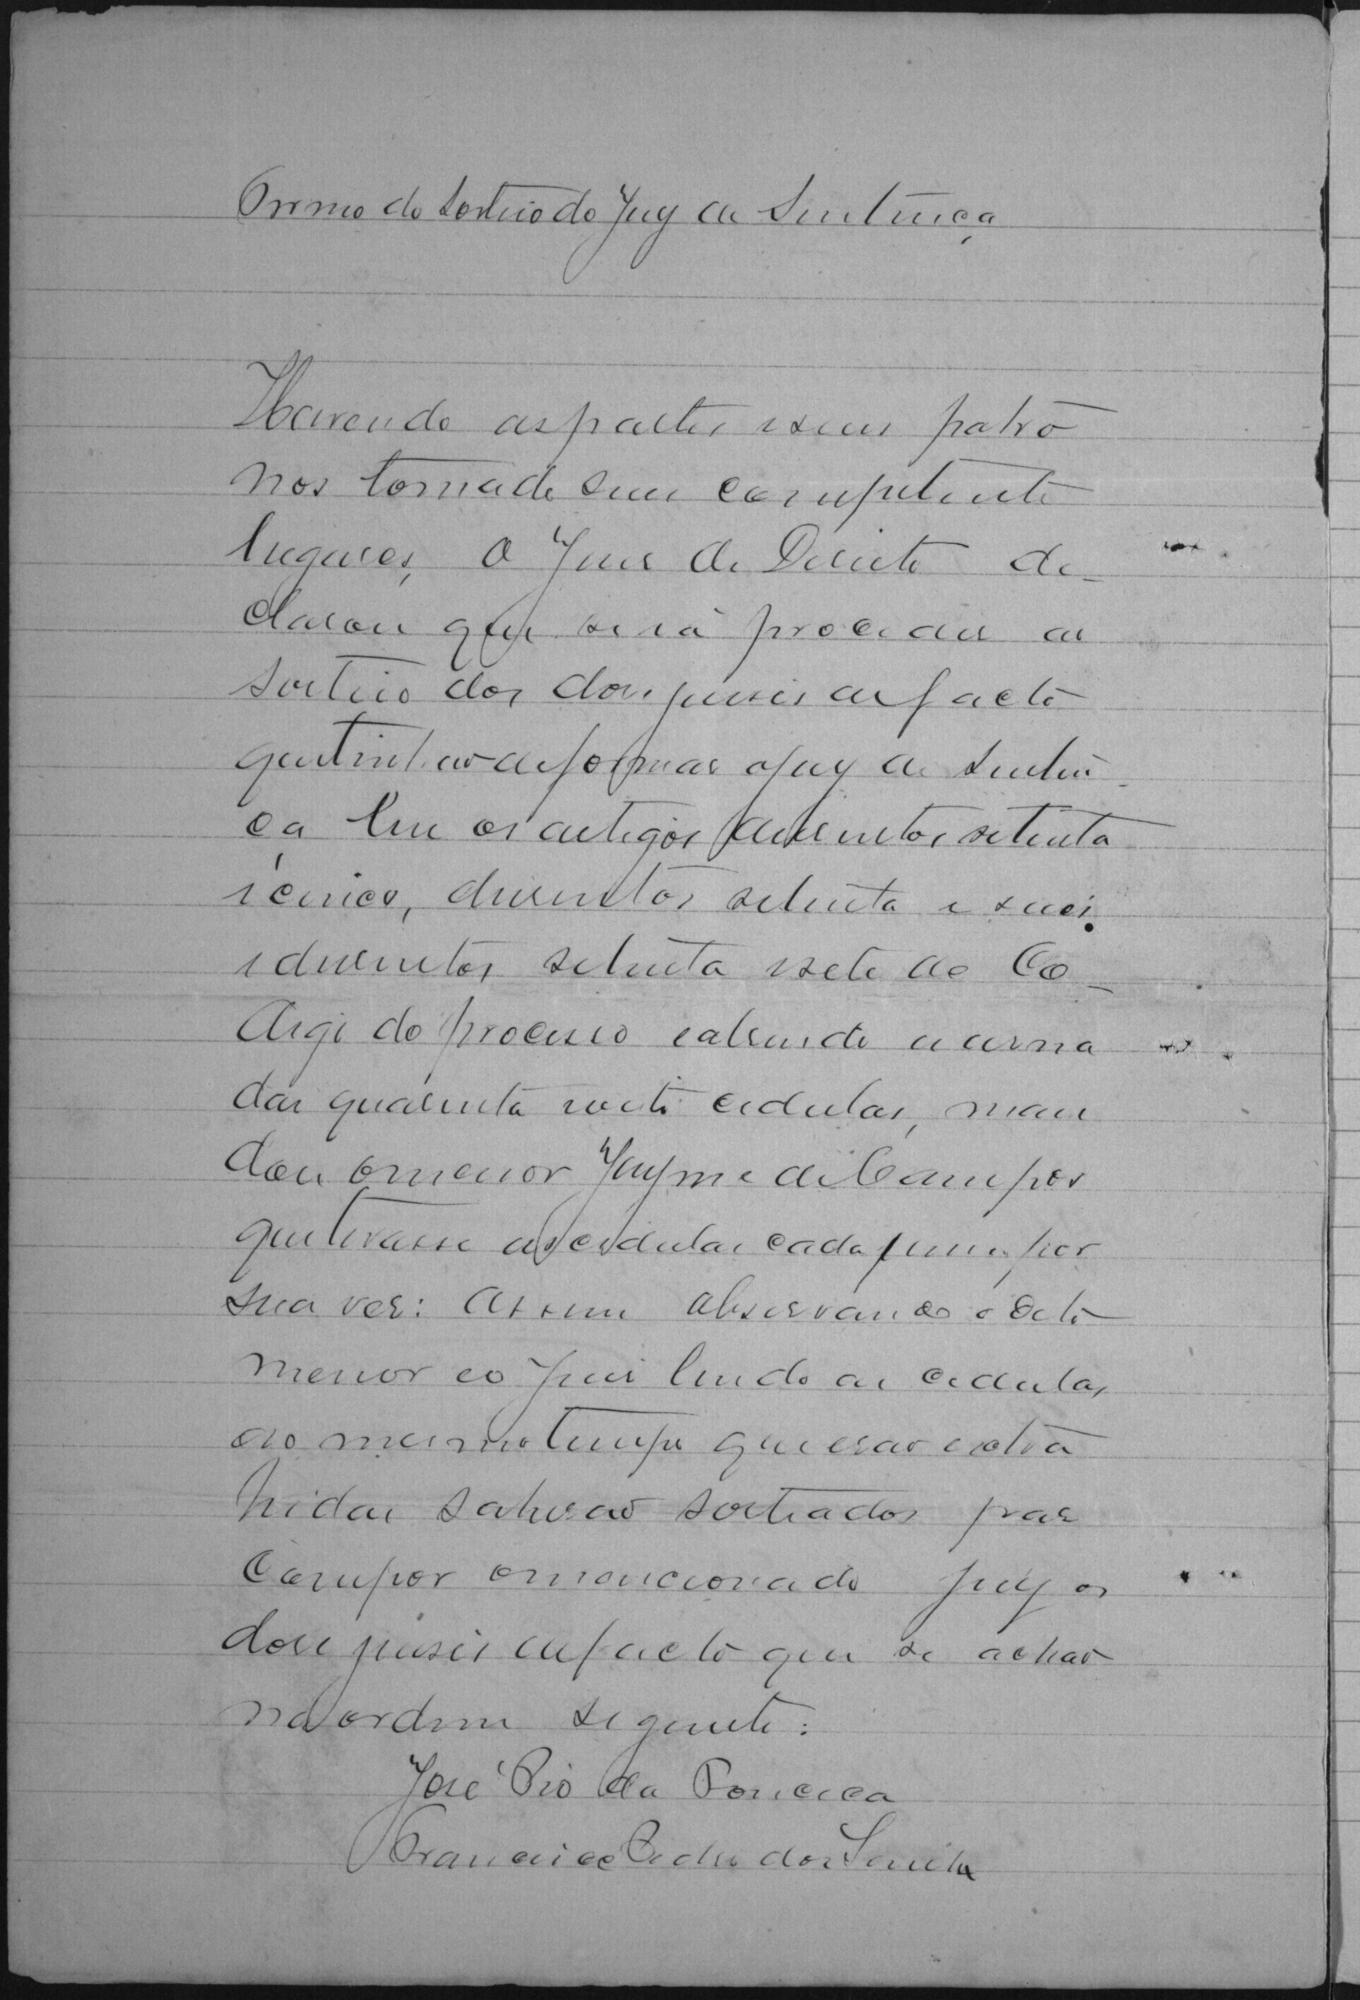 Termo do sorteio do Jury de Sentença
Havendo as partes e seus patro
nos tomado seus competente
lugares, o Juis de Direito de-
clarou que se ia proceder ao
sorteio dos dose juises de facto
que tinhão de formar o Jury de senten
ça leu os artigos dusentos setenta
e cinco, dusentos setenta e seis
e dusentos setenta e sete do Co-
digo do processo e abrindo a urna
das quarenta e oito cedulas, man
dou o menor Jayme de Campos
que tirasse as cedulas cada uma por
sua ves: assim observando o dito
menor e o Juis lendo as cedulas
ao mesmo tempo que erão extra
hidas sahirão sorteados para
compor o mencionado jury os
dose juises de facto que se achão
na ordem seguinte:
José Pio da Fonceca
Francisco Pedro dos Santos